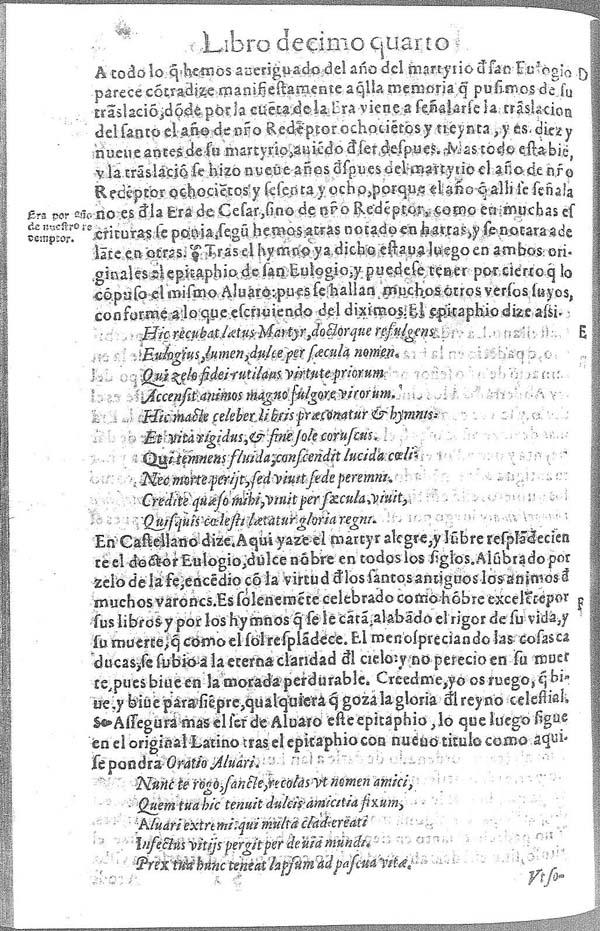 Libro decimo quarto
A todo lo q̃ hemos aueriguado del año del martyrio d̃ san Eulogio D
parece cõtradize manifiestamente aq̃lla memoria q̃ pusimos de su
trãslaciõ, dõde por la cuẽta de la Era viene a señalarse la trãslacion
del santo el año de nr̃o Redẽptor ochociẽtos y treynta, y es diez y
nueue antes de su martyrio, auiẽdo d̃ ser despues. Mas todo esta biẽ,
y la trãslaciõ se hizo nueue años d̃spues del martyrio el año de nr̃o
Redẽptor ochociẽtos y sesenta y ocho, porque el año q̃ alli se señala
Era por año
de nuestro re
demptor.
no es d̃ la Era de Cesar, sino de nr̃o Redẽptor, como en muchas es
crituras se ponia, segũ hemos atras notado en hartas, y se notara ade
lãte en otras. Tras el hymno ya dicho estaua luego en ambos ori-
ginales el epitaphio de san Eulogio, y puedese tener por cierto q̃ lo
cõpuso el mismo Aluaro: pues se hallan muchos otros versos suyos,
conforme a lo que escriuiendo del diximos. El epitaphio dize assi.
Hic recubat lætus Martyr, doctorque refulgens E
Eulogius, lumen, dulce per sæcula nomen.
Qui zelo fidei rutilans virtute priorum
Accensit animos magno fulgore virorum.
Hic macte celeber libris præconatur & hymnis:
Et vita rigidus, & sine sole coruscus.
Qui temnens fluida, conscendit lucida cœli:
Nec morte perijt, sed viuit sede peremni.
Credite quæso mihi, viuit per sæcula, viuit,
Quisquis cœlesti lætatur gloria regni.
En Castellano dize. Aqui yaze el martyr alegre, y lũbre resplãdecien
te el doctor Eulogio, dulce nõbre en todos los siglos. Alũbrado por
zelo de la fe, encẽdio cõ la virtud d̃ los santos antiguos los animos d̃
muchos varones. Es solenemẽte celebrado como hõbre excelẽte por F
sus libros y por los hymnos q̃ se le cãtã, alabãdo el rigor de su vida, y
su muerte, q̃ como el sol resplãdece. El menospreciando las cosas ca
ducas, se subio a la eterna claridad d̃l cielo: y no perecio en su muer
te, pues biue en la morada perdurable. Creedme, yo os ruego, q̃ bi-
ue, y biue para siẽpre, qualquiera q̃ goza la gloria d̃l reyno celestial.
Assegura mas el ser de Aluaro este epitaphio, lo que luego sigue
en el original Latino tras el epitaphio con nueuo titulo como aqui
se pondra Oratio Aluari.
Nunc te rogo, sancte, recolas vt nomen amici,
Quem tua hic tenuit dulcis amicitia fixum,
Aluari extremi: qui multa clade reati
Infectus vitijs pergit per deuia mundi.
Prex tua hunc teneat lapsum ad pascua vitæ.
Vt so-